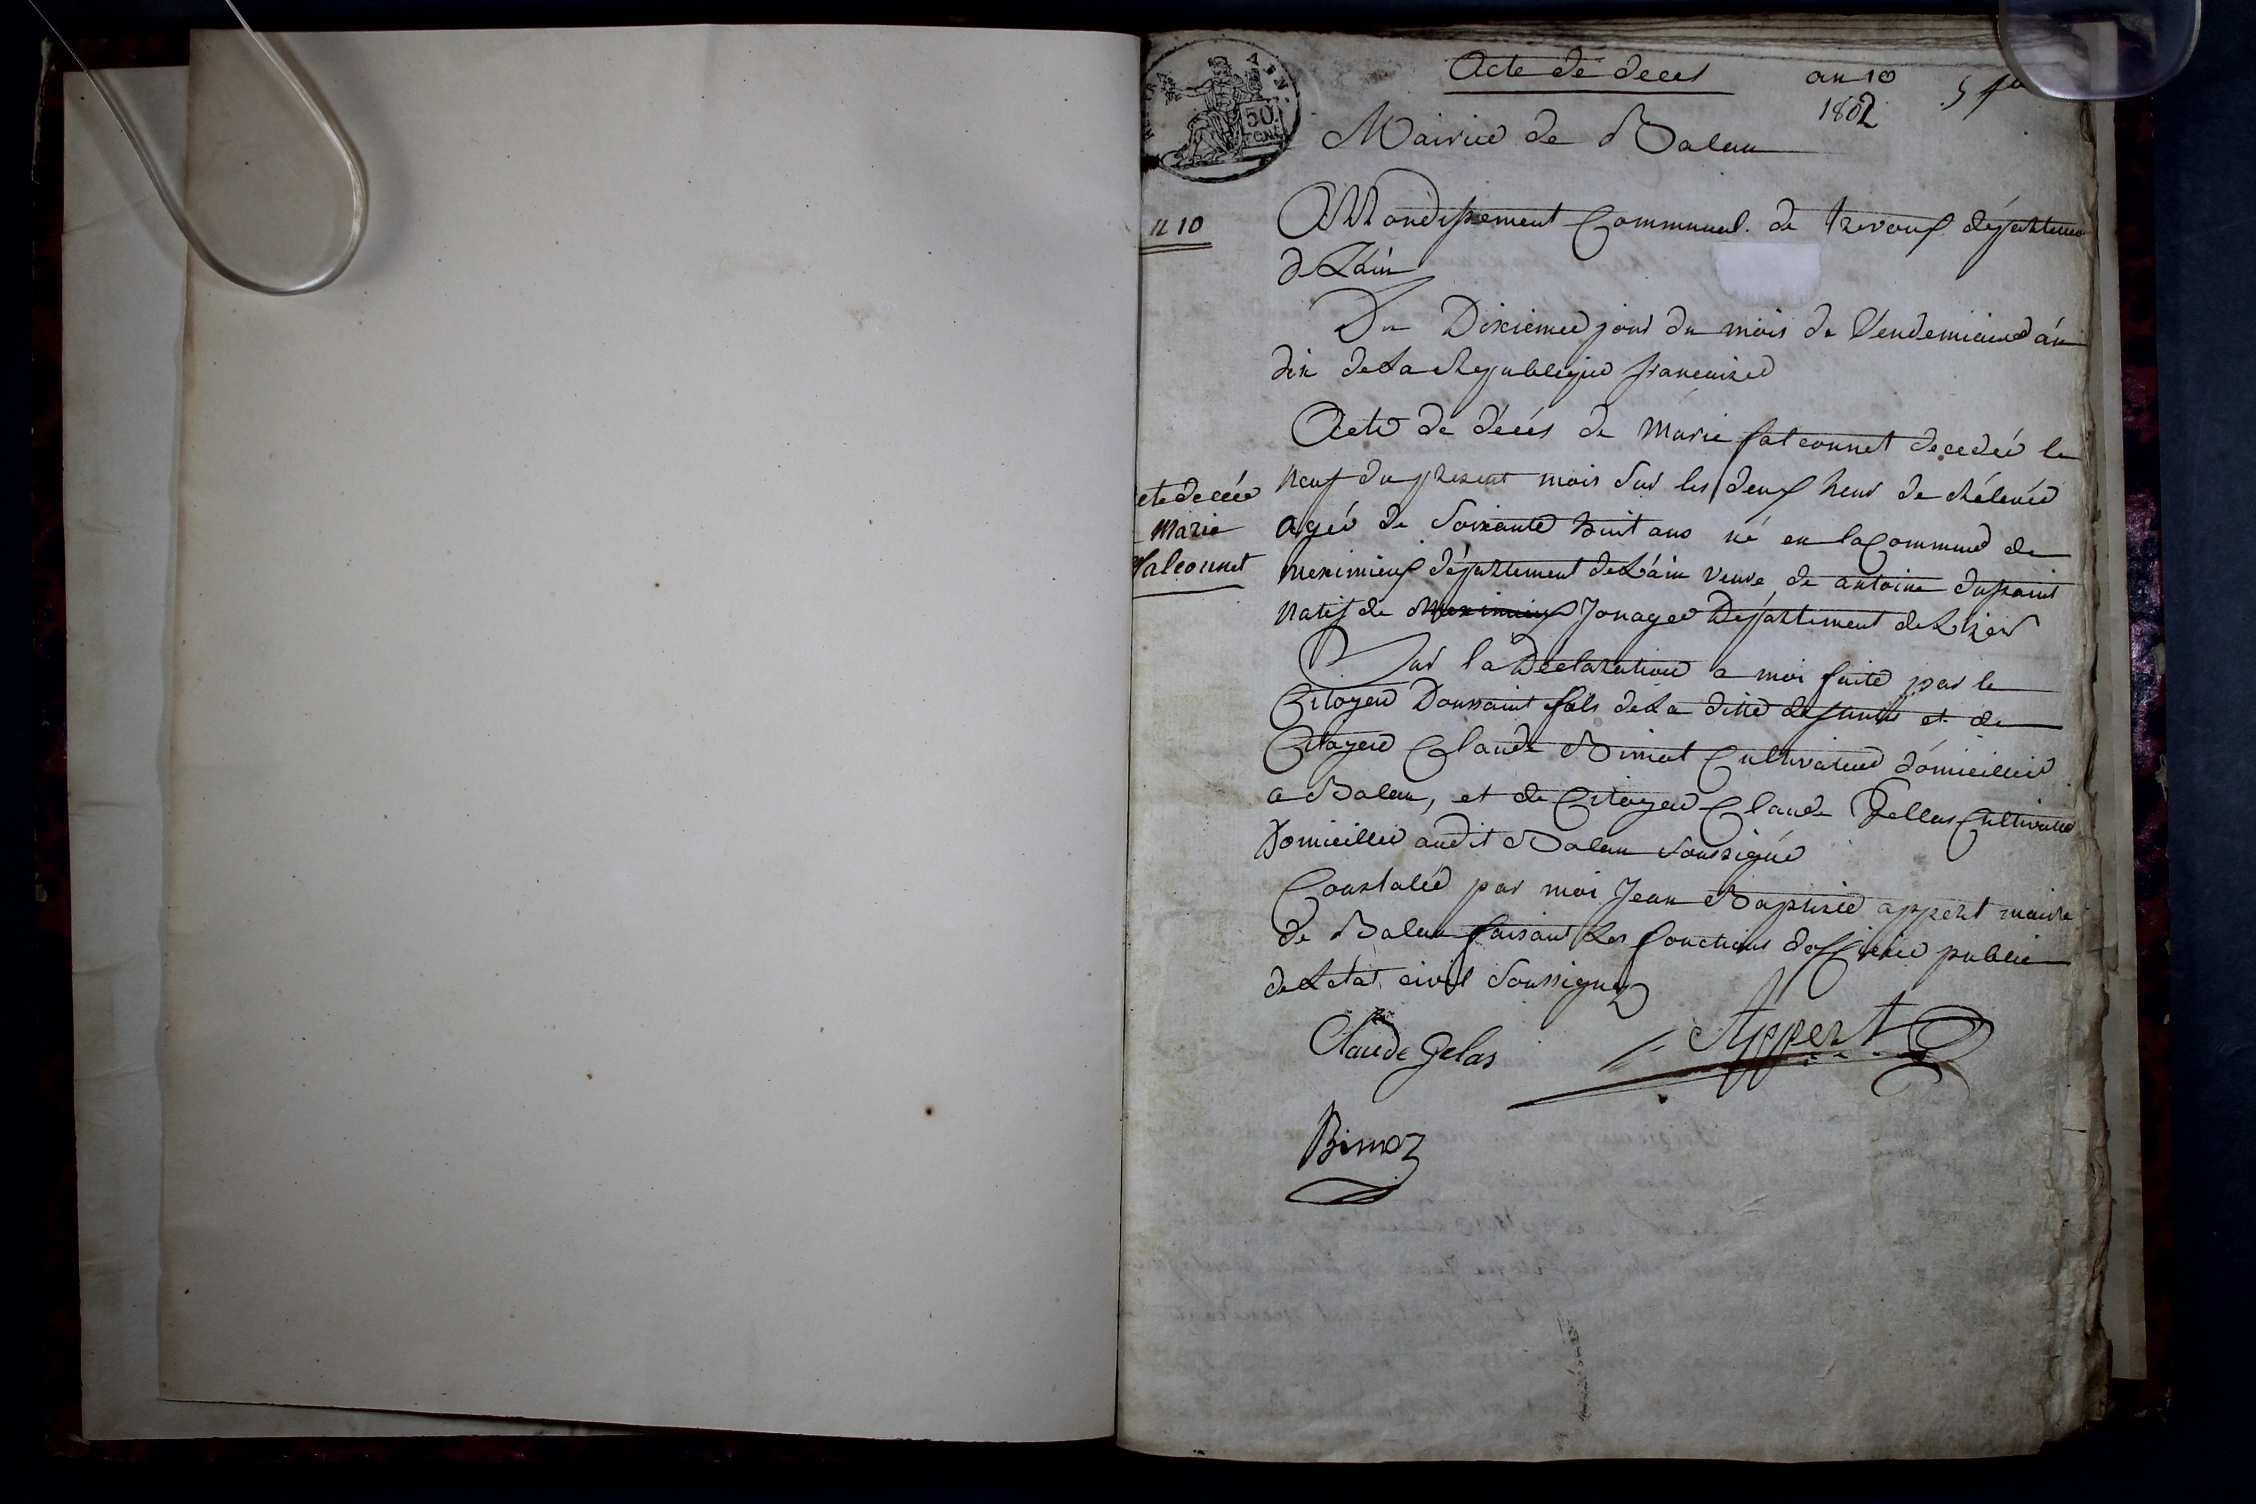 Acte de deces
an 10
1802
AIN.
50.
CENT
Mairie de Balan
n 10
Arrondissement Communal. de trevoux département
de Lain
Du Dixieme jour du mois de Vendemiaire an
dix de La Republique francaise
Acte de décés de Marie falconnet decedée le
neuf du present mois sur les deux heur de rélevée
agée de soixante huit ans né en la Commune de
meximieux département de L'ain veuve de antoine dussaint
natif de meximieux Jonage Département de Lizer
Sur la Déclaration a moi faite par le
Citoyen Doussaint fils de La ditte defunte et de
Citoyen Claude Bimot Cultivateur domicillié
a Balan, et de Citoyen Claude Gellas Cultivateur
Domicillié audit Balan soussigné
Constatée par moi Jean Baptiste appert maire
de Balan faisant Les fonctions dofficier public
de Letat civil soussignez
ete decée
Marie
falconnet
Claude Gelas
Appert
Bimoz